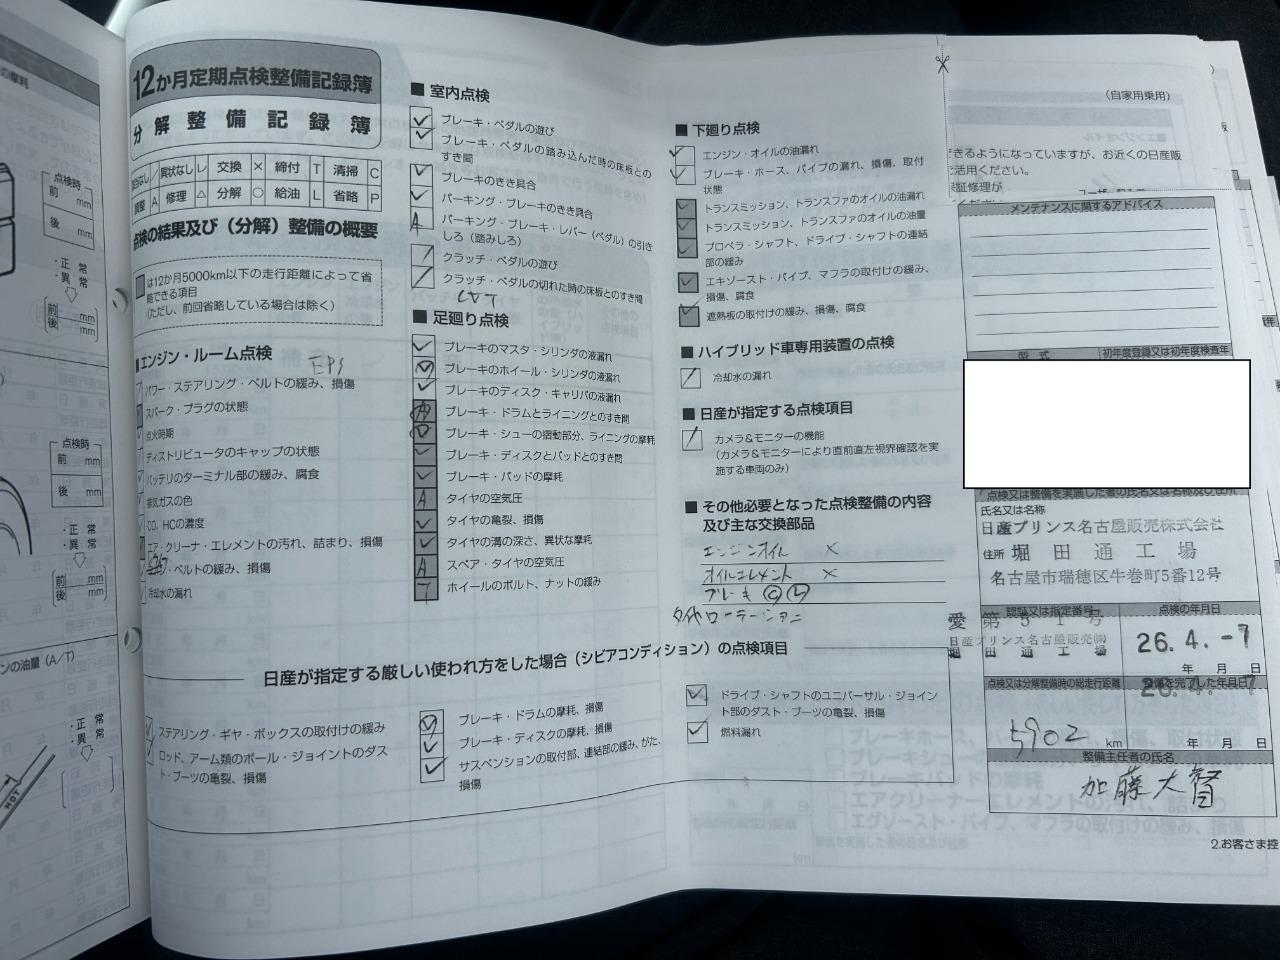 12か月定期点検整備記録簿
分解整備記録簿
異状なし レ 交換 × 締付 T 清掃 C
調整 A 修理 △ 分解 ○ 給油 L 省略 P
点検の結果及び（分解）整備の概要
は12か月5000km以下の走行距離によって省
略できる項目
（ただし、前回省略している場合は除く）
■エンジン・ルーム点検
EPS
パワー・ステアリング・ベルトの緩み、損傷
スパーク・プラグの状態
点火時期
ディストリビュータのキャップの状態
バッテリのターミナル部の緩み、腐食
排気ガスの色
CO、HCの濃度
エア・クリーナ・エレメントの汚れ、詰まり、損傷
・ベルトの緩み、損傷
冷却水の漏れ
■ 室内点検
ブレーキ・ペダルの遊び
ブレーキ・ペダルの踏み込んだ時の床板との
すき間
ブレーキのきき具合
パーキング・ブレーキのきき具合
A パーキング・ブレーキ・レバー（ペダル）の引き
しろ（踏みしろ）
クラッチ・ペダルの遊び
クラッチ・ペダルの切れた時の床板とのすき間
CVT
■ 足廻り点検
ブレーキのマスタ・シリンダの液漏れ
ブレーキのホイール・シリンダの液漏れ
ブレーキのディスク・キャリパの液漏れ
ブレーキ・ドラムとライニングとのすき間
ブレーキ・シューの摺動部分、ライニングの摩耗
ブレーキ・ディスクとパッドとのすき間
ブレーキ・パッドの摩耗
A タイヤの空気圧
タイヤの亀裂、損傷
タイヤの溝の深さ、異状な摩耗
A スペア・タイヤの空気圧
T ホイールのボルト、ナットの緩み
■ 下廻り点検
エンジン・オイルの油漏れ
ブレーキ・ホース、パイプの漏れ、損傷、取付
状態
トランスミッション、トランスファのオイルの油漏れ
トランスミッション、トランスファのオイルの油量
プロペラ・シャフト、ドライブ・シャフトの連結
部の緩み
エキゾースト・パイプ、マフラの取付けの緩み、
損傷、腐食
遮熱板の取付けの緩み、損傷、腐食
■ ハイブリッド車専用装置の点検
冷却水の漏れ
■ 日産が指定する点検項目
カメラ＆モニターの機能
（カメラ＆モニターにより直前直左視界確認を実
施する車両のみ）
■ その他必要となった点検整備の内容
及び主な交換部品
エンジンオイル ×
オイルエレメント ×
ブレーキ Ⓒ Ⓛ
タイヤローテーション
日産が指定する厳しい使われ方をした場合（シビアコンディション）の点検項目
ステアリング・ギヤ・ボックスの取付けの緩み
ロッド、アーム類のボール・ジョイントのダス
ト・ブーツの亀裂、損傷
ブレーキ・ドラムの摩耗、損傷
ブレーキ・ディスクの摩耗、損傷
サスペンションの取付部、連結部の緩み、がた、
損傷
ドライブ・シャフトのユニバーサル・ジョイン
ト部のダスト・ブーツの亀裂、損傷
燃料漏れ
（自家用乗用）
きるようになっていますが、お近くの日産販
活用ください。
メンテナンスに関するアドバイス
型式 初年度登録又は初年度検査年
点検又は整備を実施した者の氏名又は名称及び住所
氏名又は名称
日産プリンス名古屋販売株式会社
住所 堀田通工場
名古屋市瑞穂区牛巻町5番12号
認証又は指定番号 点検の年月日
愛第51号
日産プリンス名古屋販売㈱
堀田通工場
26.4.-7
年 月 日
点検又は分解整備時の総走行距離 整備を完了した年月日
26.4.-7
5902 km
年 月 日
整備主任者の氏名
加藤大督
2.お客さま控
点検時
前 mm
後 mm
・正常
・異常
前 mm
後 mm
点検時
前 mm
後 mm
・正常
・異常
前 mm
後 mm
ンの油量（A／T）
・正常
・異常
HOT